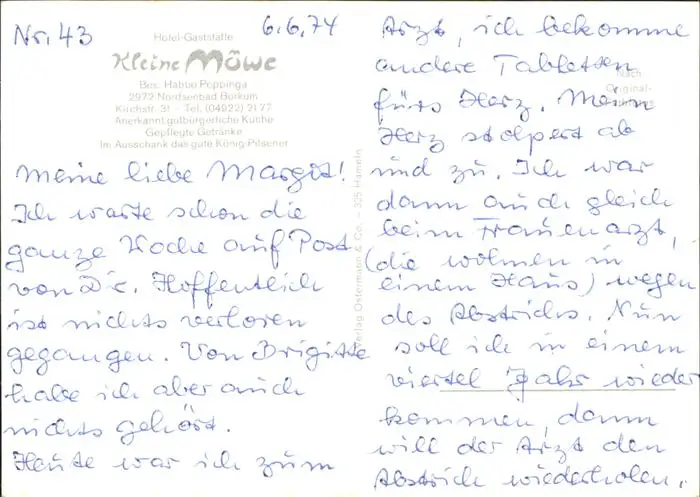 Nr. 43
6.6.74
Hotel-Gaststätte
Kleine Möwe
Bes. Habbo Poppinga
2972 Nordseebad Borkum
Kirchstr. 31 - Tel. (04922) 21 77
Anerkannt gutbürgerliche Küche
Gepflegte Getränke
Im Ausschank das gute König-Pilsener
Meine liebe Margit!
Ich warte schon die
ganze Woche auf Post
von Dir. Hoffentlich
ist nichts verloren
gegangen. Von Brigitte
habe ich aber auch
nichts gehört.
Heute war ich zum
Verlag Ostermann & Co. – 325 Hameln
Nach
Original-
Arzt, ich bekomme
andere Tabletten
fürs Herz. Mein
Herz stolpert ab
und zu. Ich war
dann auch gleich
beim Frauenarzt,
(die wohnen in
einem Haus) wegen
des Abstrichs. Nun
soll ich in einem
viertel Jahr wieder
kommen, dann
will der Arzt den
Abstrich wiederholen.